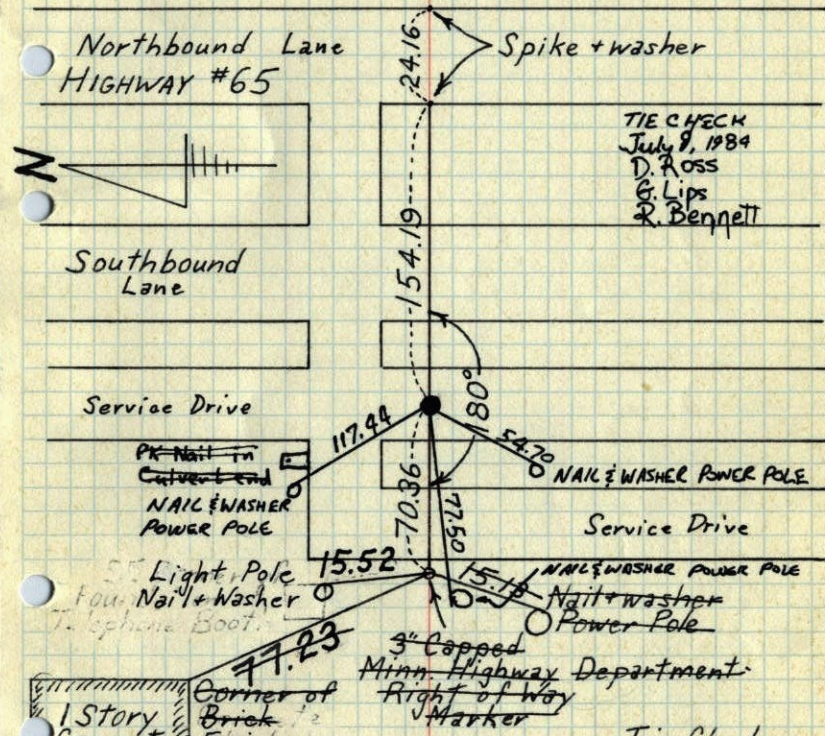 Northbound Lane
HIGHWAY #65
24.16
Spike + washer
TIE CHECK
July 8, 1984
D. Ross
G. Lips
R. Bennett
N
154.19
Southbound
Lane
180°
Service Drive
117.44
54.70
PK Nail in
Culvert end
NAIL & WASHER
POWER POLE
NAIL & WASHER POWER POLE
70.36
77.50
Service Drive
Light Pole
Nail + Washer
15.52
15.18
NAIL & WASHER POWER POLE
Nail + washer
Power Pole
Telephone Booth
77.23
3" Capped
Minn. Highway Department
Right of Way
Marker
Corner of
Brick
1 Story